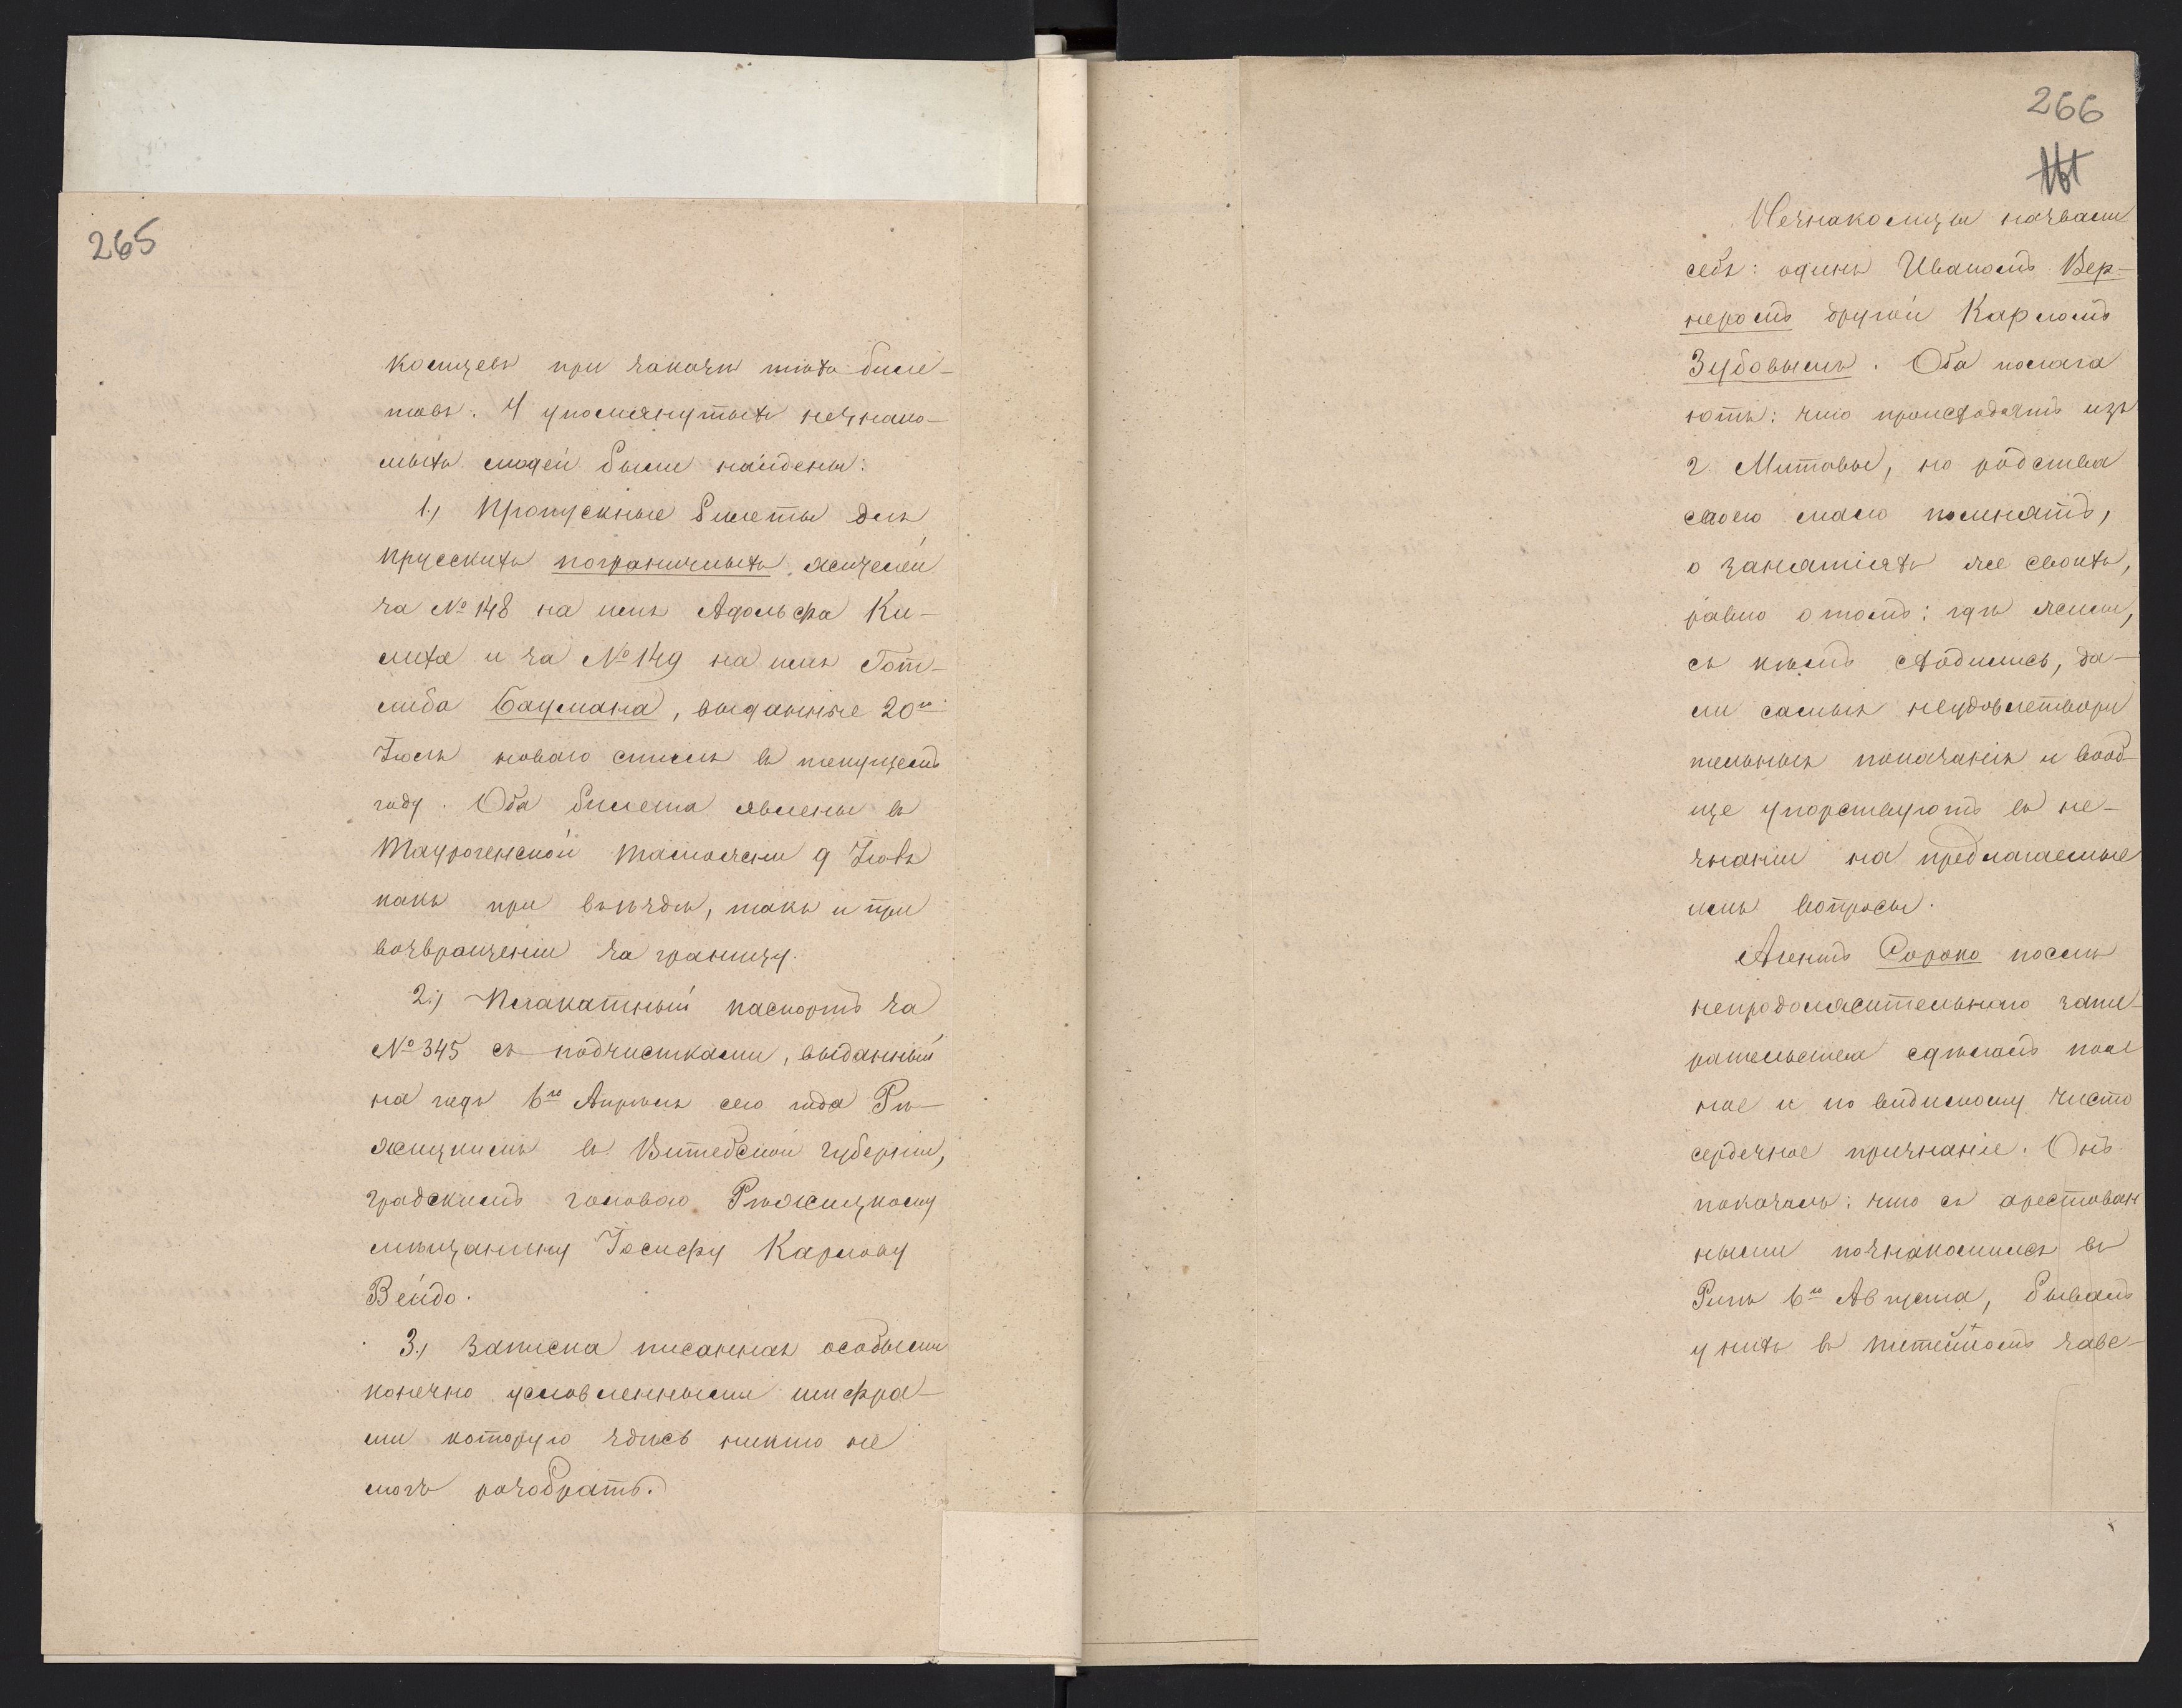 265
комцевъ при заказѣ тѣхъ биле-
товъ. У упомянутыхъ незнако-
мыхъ людей были найдены:
1., Пропускные билеты для
прусскихъ пограничныхъ жителей
за № 148 на имя Адольфа Ки-
лиха и за № 149 на имя Гот-
либа Баумана, выданные 20го
Іюля новаго стиля въ текущемъ
году. Оба билета явлены въ
Таурогенской таможни 9 Іюля
какъ при въѣздѣ, такъ и при
возвращеніи за границу.
2., Плакатный паспортъ за
№ 345 съ подчистками, выданный
на годъ 6го Апрѣля сего года Рѣ-
жицкимъ въ Витебской губерніи,
градскимъ головою Рѣжицкому
мѣщанину Іосифу Карлову
Вейдо.
3., Записка писанная особыми
конечно условленными шифра-
ми которую здѣсь никто не
могъ разобрать.
266
Незнакомцы назвали
себя: одинъ Иваномъ Вер-
неромъ другой Карломъ
Зубовымъ. Оба полага
ютъ: что происходятъ изъ
г. Митовы, но родства
своего мало помнятъ,
о занятіяхъ же своихъ,
равно о томъ: гдѣ жили,
съ кѣмъ сходились, да-
ли самыя неудовлетвори
тельныя показанія и вооб-
ще упорствуютъ въ не-
знаніи на предлагаемые
имъ вопросы.
Агентъ Сороко послѣ
непродолжительнаго запи-
рательства сдѣлалъ пол
ное и по видимому чисто
сердечное признаніе. Онъ
показалъ: что съ арестован
ными познакомился въ
Ригѣ 6го Августа, бывалъ
у нихъ въ питейномъ заве-